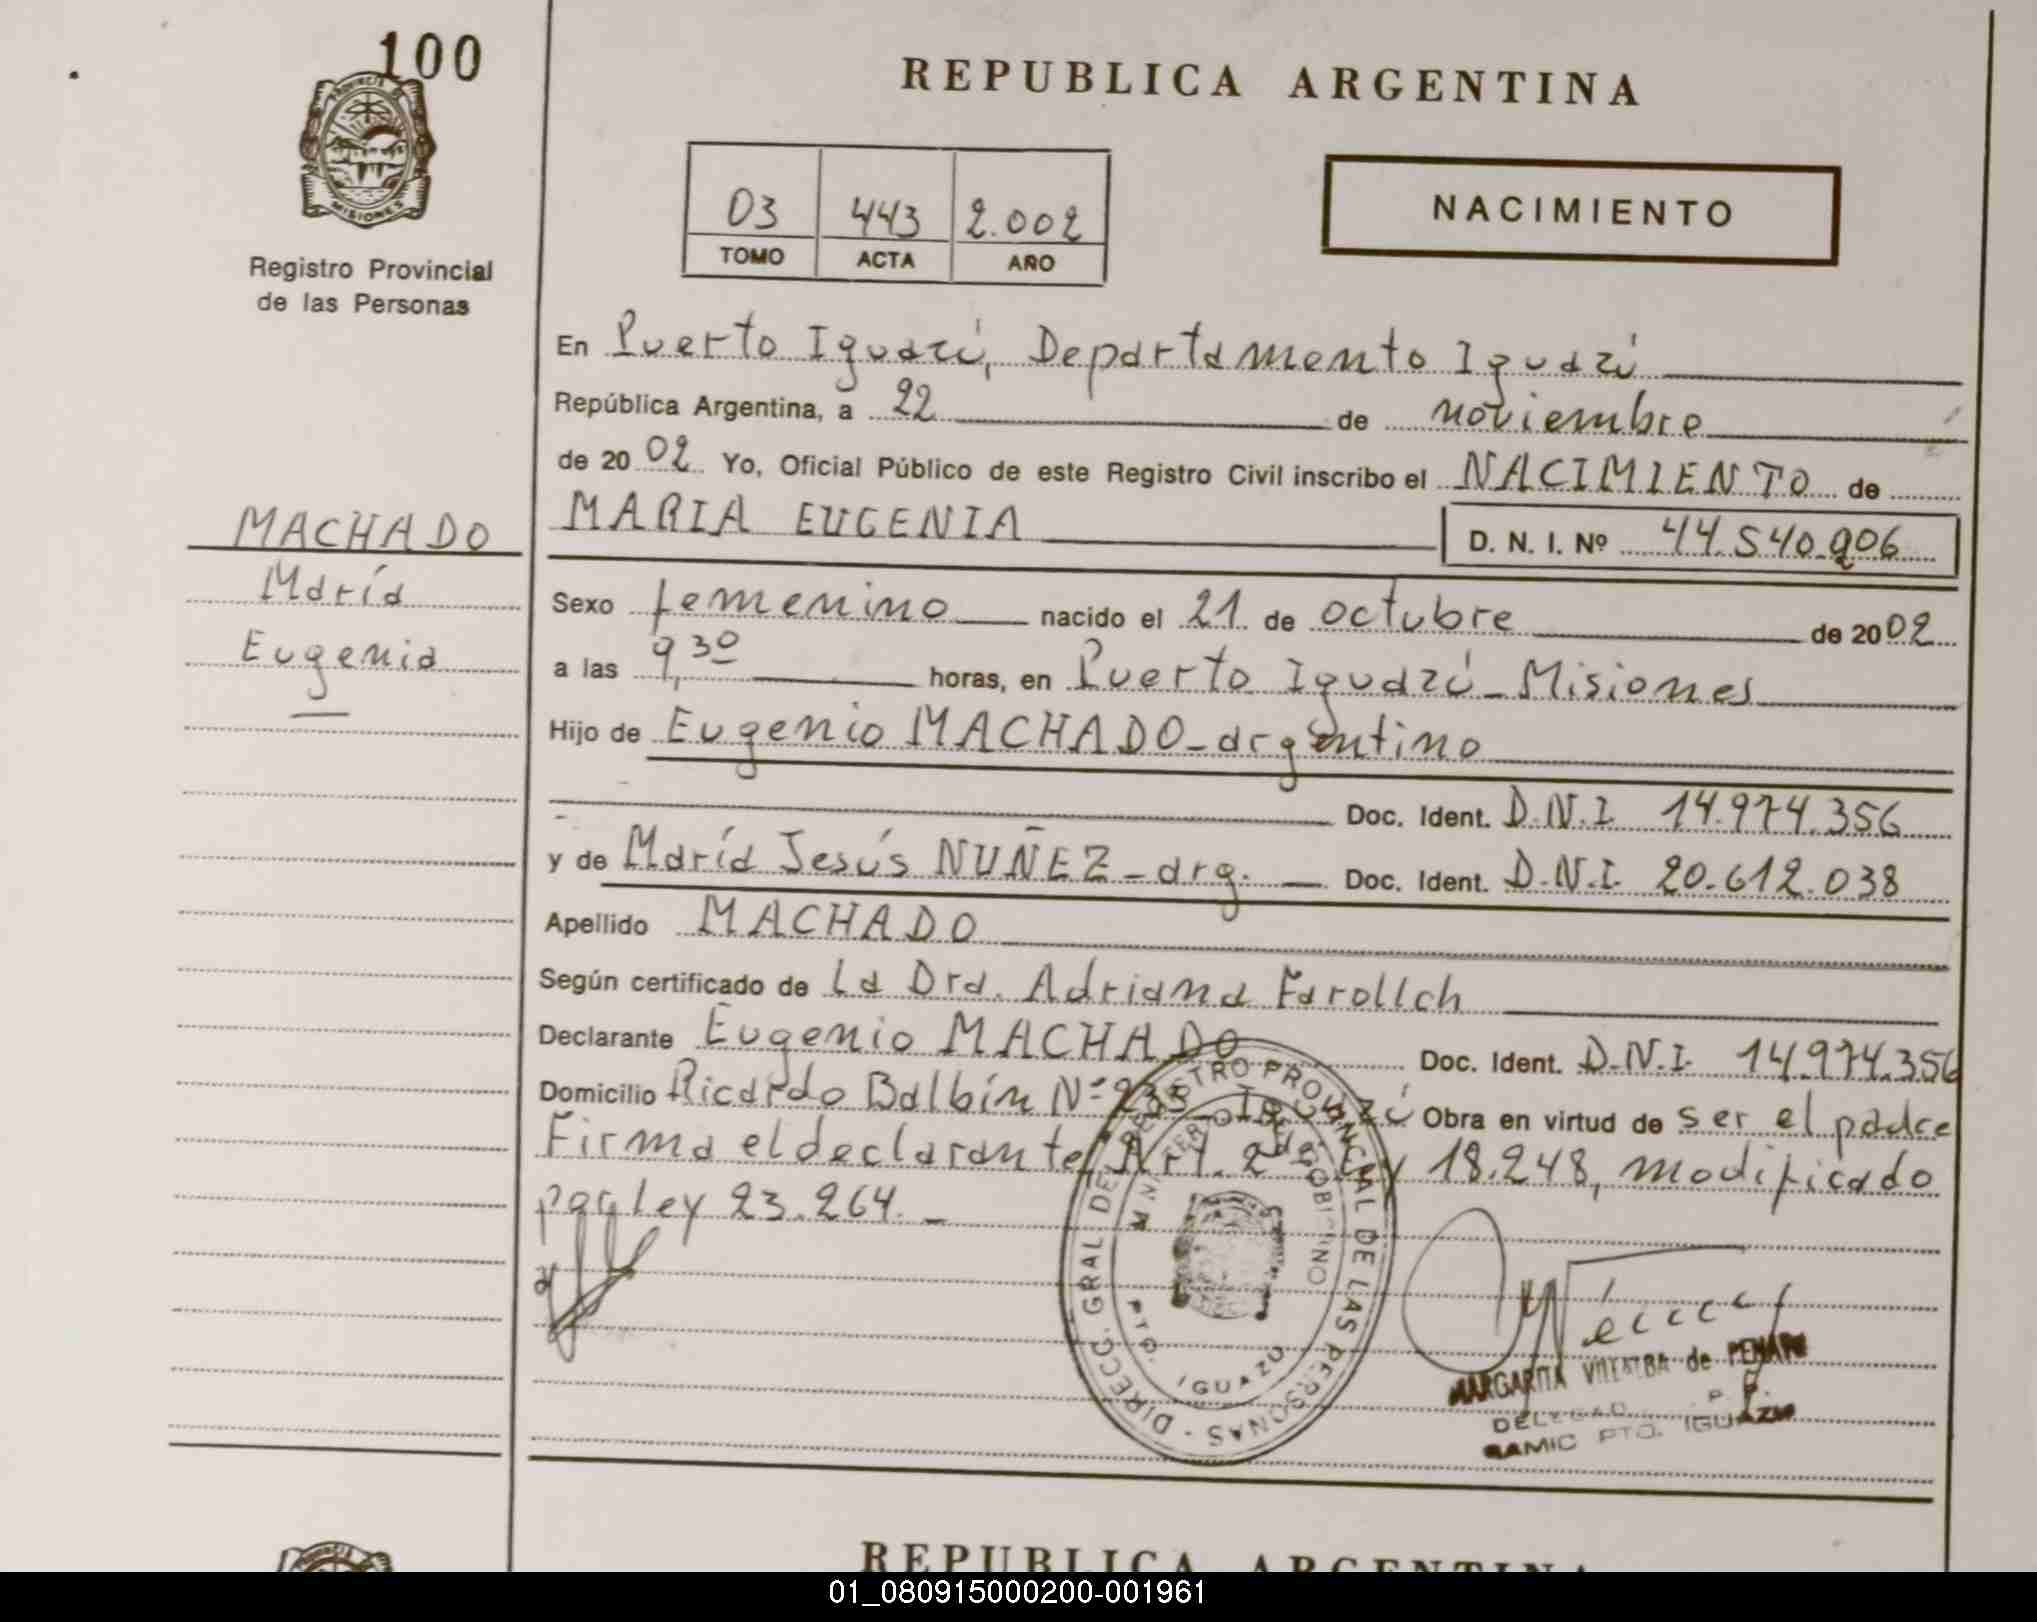 100
REPUBLICA ARGENTINA
PROVINCIA DE
MISIONES
Registro Provincial
de las Personas
03 443 2.002
TOMO ACTA AÑO
NACIMIENTO
En Puerto Iguazú, Departamento Iguazú
República Argentina, a 22 de noviembre
de 2002 Yo, Oficial Público de este Registro Civil inscribo el NACIMIENTO de
MARIA EUGENIA D. N. I. Nº 44.540.906
MACHADO
María
Eugenia
Sexo femenino nacido el 21 de octubre de 2002
a las 9,30 horas, en Puerto Iguazú - Misiones
Hijo de Eugenio MACHADO - argentino
Doc. Ident. D.N.I 14.974.356
y de María Jesús NUÑEZ - arg. - Doc. Ident. D.N.I. 20.612.038
Apellido MACHADO
Según certificado de La Dra. Adriana Farollch
Declarante Eugenio MACHADO Doc. Ident. D.N.I. 14.974.356
Domicilio Ricardo Balbín Nº 235 - Iguazú Obra en virtud de ser el padre
Firma el declarante, Art. 2 de Ley 18.248, modificado
por ley 23.264. -
DIRECC. GRAL DEL REGISTRO PROVINCIAL DE LAS PERSONAS
MINISTERIO DE GOBIERNO
PTO. IGUAZU
MARGARITA VILLALBA de PENAR
SAMIC PTO. IGUAZU
REPUBLICA ARGENTINA
01_080915000200-001961